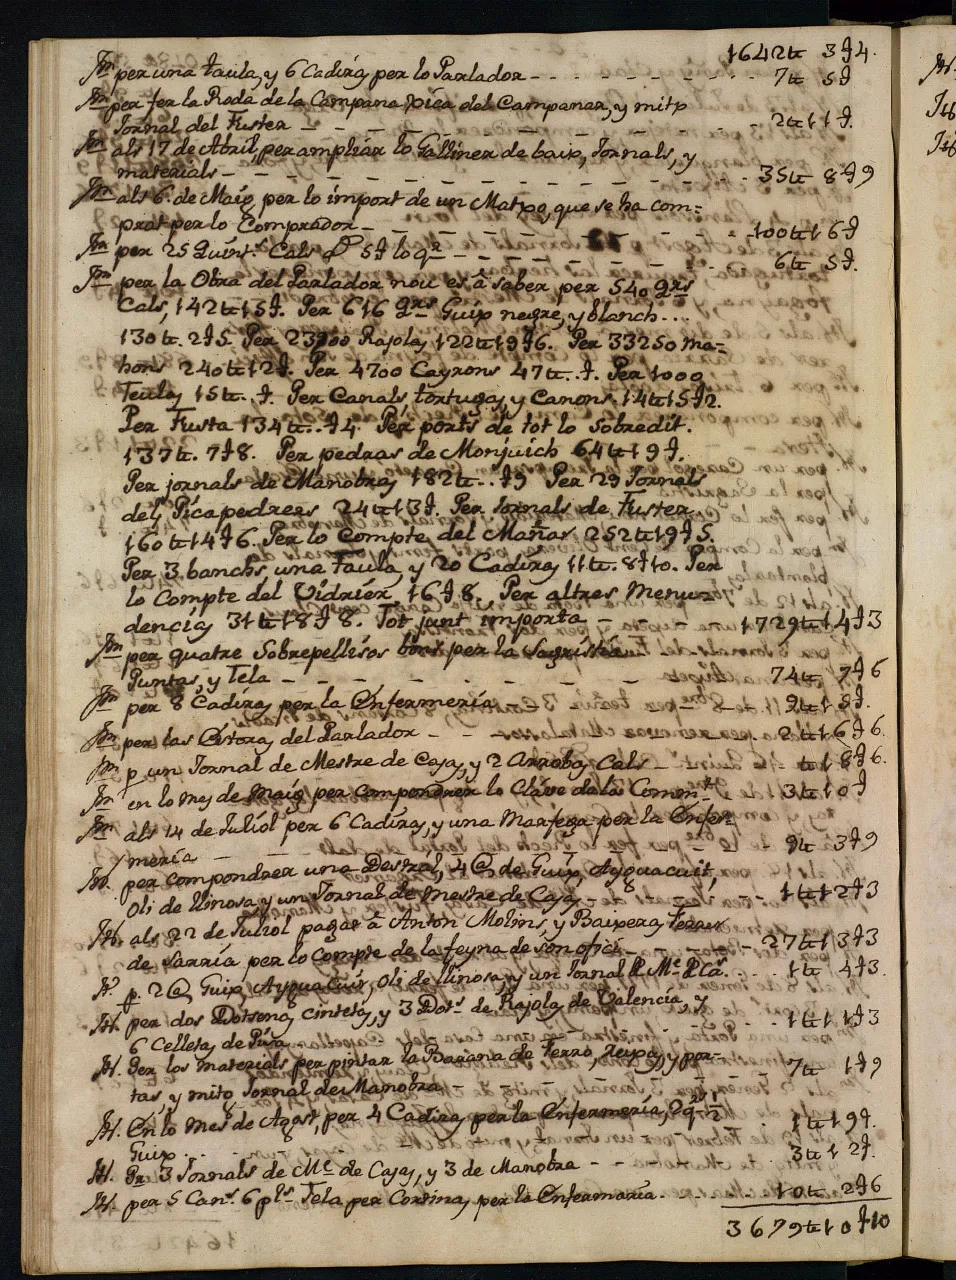 1642 ₶ 3 ß 4.
Jm per una taula, y 6 Cadiras per lo Parlador - - - 7 ₶ 5 ß
Jm per fer la Roda de la Campana xica del Campanar, y mitx
Jornal del Fuster - - - 2 ₶ 11 ß.
Jm als 17 de Abril, per ampliar lo Galliner de baix, Jornals, y
materials - - - 35 ₶ 8 ß 9
Jm als 6 de Maig, per lo import de un Matxo, que se ha com=
prat per lo Comprador - - - 100 ₶ 16 ß
Jm per 25 Quints. Cals 5 ß lo qr - - - 6 ₶ 5 ß.
Jm per la Obra del Parlador nou es â saber per 540 qrs
Cals, 142 ₶ 15 ß. Per 616 qrs Guix negre, y blanch...
130 ₶. 2 ß 5. Per 23900 Rajolas 122 ₶ 19 ß 6. Per 33250 ma=
hons 240 ₶ 12 ß. Per 4700 Cayrons 47 ₶.. ß. Per 1000
Teulas 15 ₶.. ß. Per Canals, tortugas, y Canons 14 ₶ 15 ß 2.
Per Fusta 134 ₶.. ß 4. Per ports de tot lo sobredit.
137 ₶. 7 ß 8. Per pedras de Monjuich 64 ₶ 19 ß.
Per jornals de Manobras 182 ₶.. ß 9 Per 29 Jornals
dels Picapedrers 24 ₶ 13 ß. Per Jornals de Fuster
160 ₶ 14 ß 6. Per lo Compte del Mañas 252 ₶ 19 ß 5.
Per 3 banchs, una taula, y 20 Cadiras 11 ₶. 8 ß 10. Per
lo Compte del Vidrier 16 ß 8. Per altres Menu=
dencias 31 ₶ 18 ß 8. Tot junt importa - 1729 ₶ 14 ß 3
Jm per quatre Sobrepellisos bons per la Sagristia
Puntas, y Tela - - - 74 ₶ 7 ß 6
Jm per 8 Cadiras per la Enfermeria 9 ₶ 15 ß.
Jm per las Estoras del Parlador - - 2 ₶ 16 ß 6.
Jm p un Jornal de Mestre de Casas, y 2 Arrobas Cals - ₶ 18 ß 6.
Jm en lo mes de Maig per compondrer lo Clave de la 3 ₶ 10 ß
Jm als 14 de Juliol per 6 Cadiras, y una Marfega per la Enfer=
meria - - - 9 ₶ 3 ß 9
It. per compondrer una Destral, 4 @ de Guix, Ayguacuit,
Oli de llinosa y un Jornal de mestre de Casas - 1 ₶ 12 ß 3
It. als 22 de Juliol pagat â Anton Molins, y Baixeras Ferrer
de Sarriá per lo compte de la feyna de son ofici - - - 27 ₶ 13 ß 3
It. p. 2 @ Guix, Ayguacuit, Oli de llinosa, y un Jornal Me. 1 ₶ 4 ß 3.
It. per dos Dotsenas cintetas, y 3 Dots. de Rajolas de Valencia, y
6 Celletas de Pisa 1 ₶ 11 ß 3
It. Per los materials per pintar la Barana de Ferro, Reixas, y por=
tas, y mitx Jornal de Manobra - - - 7 ₶ 1 ß 9
It. En lo Mes de Agost, per 4 Cadiras per la Enfermeria, 2 qrs
Guix . . . 1 ₶ 19 ß.
It. Per 3 Jornals de Me. de Casas, y 3 de Manobra - - 3 ₶ 12 ß.
It. per 5 Cans. 6 pls Tela per Cortinas per la Enfermaria. 10 ₶ 2 ß 6
3679 ₶ 10 ß 10